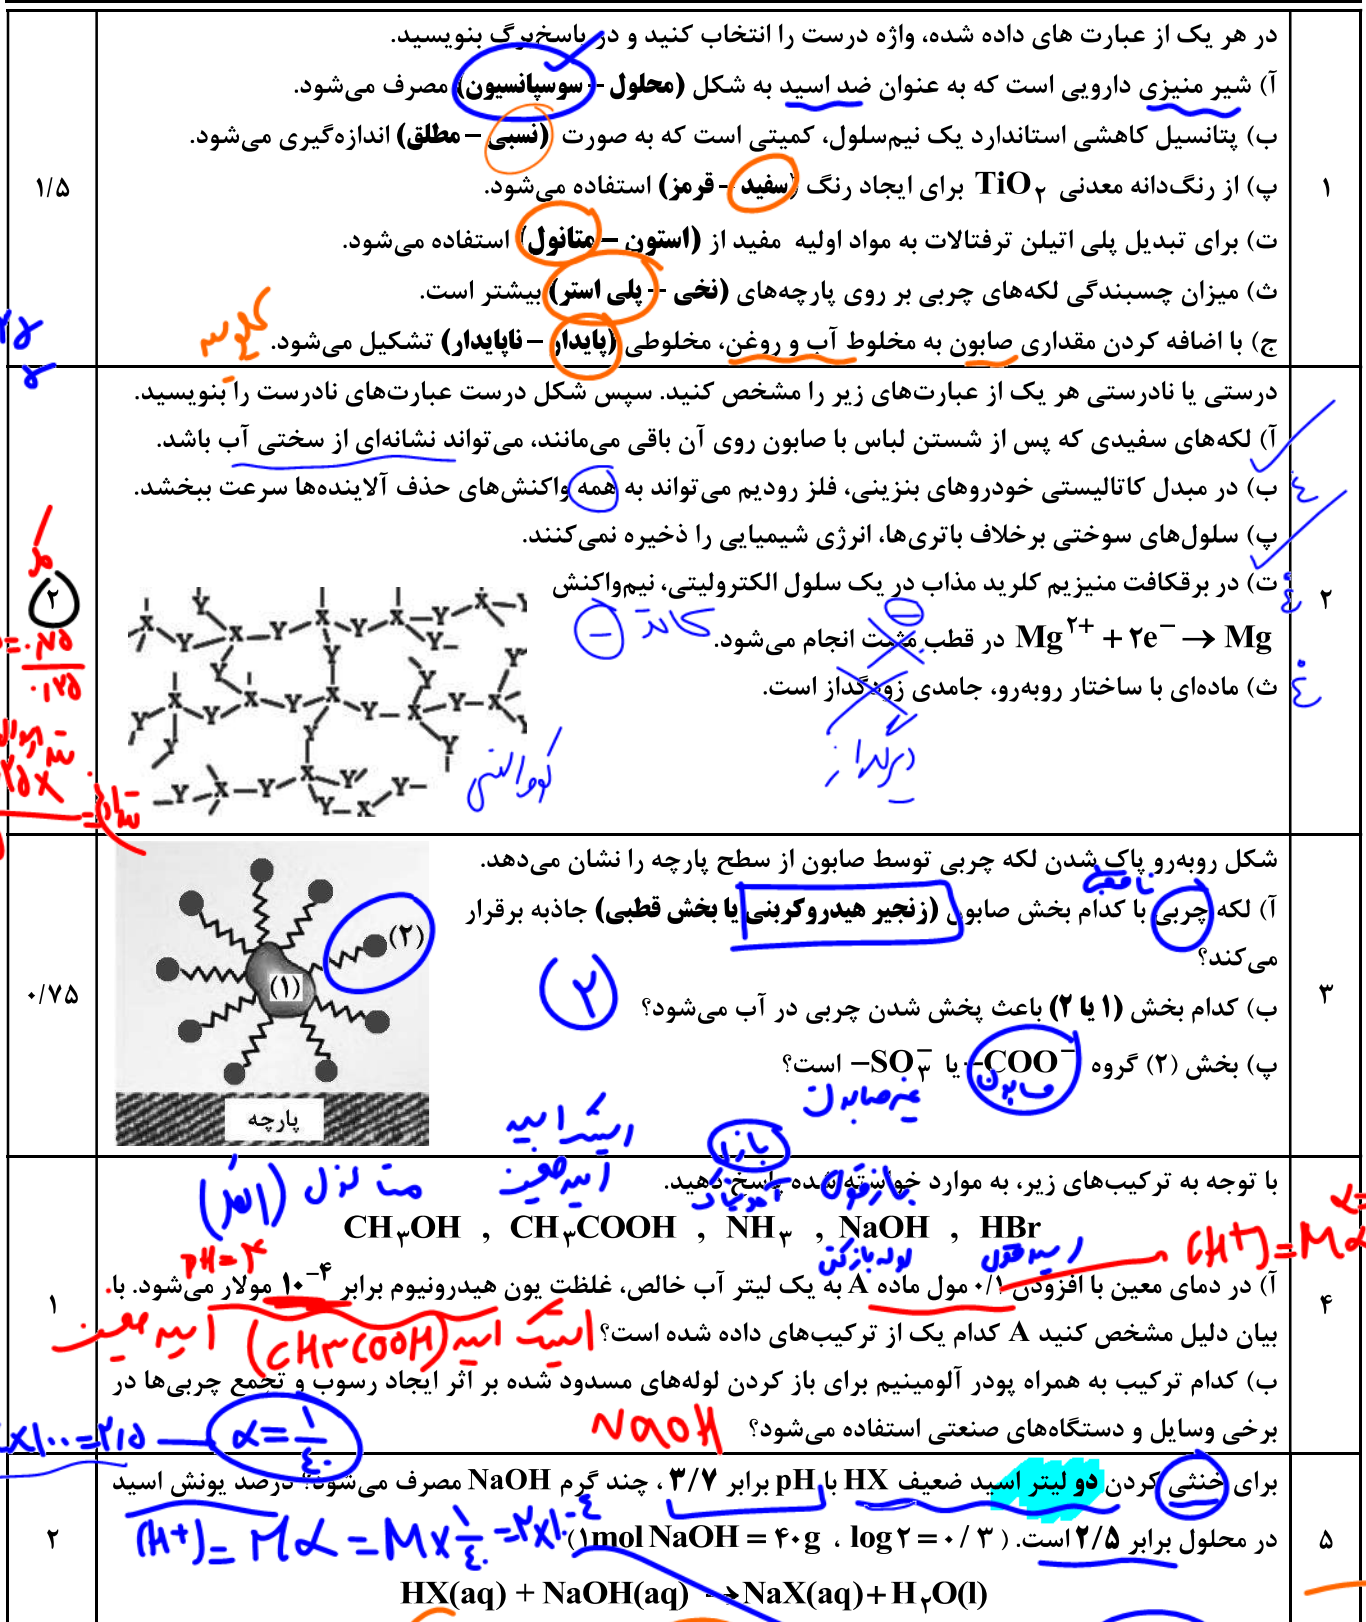 در هر یک از عبارت های داده شده، واژه درست را انتخاب کنید و در پاسخ‌برگ بنویسید.
آ) شیر منیزی دارویی است که به عنوان ضد اسید به شکل (محلول – سوسپانسیون) مصرف می‌شود.
ب) پتانسیل کاهشی استاندارد یک نیم‌سلول، کمیتی است که به صورت (نسبی – مطلق) اندازه‌گیری می‌شود.
۱/۵
۱
پ) از رنگ‌دانه معدنی TiO۲ برای ایجاد رنگ (سفید – قرمز) استفاده می‌شود.
ت) برای تبدیل پلی اتیلن ترفتالات به مواد اولیه مفید از (استون – متانول) استفاده می‌شود.
ث) میزان چسبندگی لکه‌های چربی بر روی پارچه‌های (نخی – پلی استر) بیشتر است.
ج) با اضافه کردن مقداری صابون به مخلوط آب و روغن، مخلوطی (پایدار – ناپایدار) تشکیل می‌شود.
درستی یا نادرستی هر یک از عبارت‌های زیر را مشخص کنید. سپس شکل درست عبارت‌های نادرست را بنویسید.
آ) لکه‌های سفیدی که پس از شستن لباس با صابون روی آن باقی می‌مانند، می‌تواند نشانه‌ای از سختی آب باشد.
ب) در مبدل کاتالیستی خودروهای بنزینی، فلز رودیم می‌تواند به همه واکنش‌های حذف آلاینده‌ها سرعت ببخشد.
پ) سلول‌های سوختی برخلاف باتری‌ها، انرژی شیمیایی را ذخیره نمی‌کنند.
ت) در برقکافت منیزیم کلرید مذاب در یک سلول الکترولیتی، نیم‌واکنش
۲
۲
Mg۲+ + ۲e− → Mg در قطب مثبت انجام می‌شود.
کاتد
ث) ماده‌ای با ساختار روبه‌رو، جامدی زودگداز است.
دیرگداز
کووالانسی
شکل روبه‌رو پاک شدن لکه چربی توسط صابون از سطح پارچه را نشان می‌دهد.
ناقطبی
آ) لکه چربی با کدام بخش صابون (زنجیر هیدروکربنی یا بخش قطبی) جاذبه برقرار
می‌کند؟
(۲)
(۱)
۰/۷۵
۳
ب) کدام بخش (۱ یا ۲) باعث پخش شدن چربی در آب می‌شود؟
۲
پ) بخش (۲) گروه −COO− یا −SO۳− است؟
صابون
غیرصابونی
پارچه
با توجه به ترکیب‌های زیر، به موارد خواسته شده پاسخ دهید.
استیک اسید
اسید ضعیف
باز قوی
متانول (الکل)
CH۳OH , CH۳COOH , NH۳ , NaOH , HBr
لوله بازکن
اسید قوی
pH=۴
آ) در دمای معین با افزودن ۰/۱ مول ماده A به یک لیتر آب خالص، غلظت یون هیدرونیوم برابر ۱۰−۴ مولار می‌شود. با
۱
۴
بیان دلیل مشخص کنید A کدام یک از ترکیب‌های داده شده است؟
استیک اسید (CH۳COOH) اسید ضعیف
ب) کدام ترکیب به همراه پودر آلومینیم برای باز کردن لوله‌های مسدود شده بر اثر ایجاد رسوب و تجمع چربی‌ها در
برخی وسایل و دستگاه‌های صنعتی استفاده می‌شود؟
NaOH
α=۱/۴۰
برای خنثی کردن دو لیتر اسید ضعیف HX با pH برابر ۳/۷ ، چند گرم NaOH مصرف می‌شود؟ درصد یونش اسید
۲
۵
در محلول برابر ۲/۵ است. (۱mol NaOH = ۴۰g ، log۲ = ۰/۳)
[H+]= Mα = M×۱/۴۰ = ۲×۱۰−۴
HX(aq) + NaOH(aq) → NaX(aq) + H۲O(l)